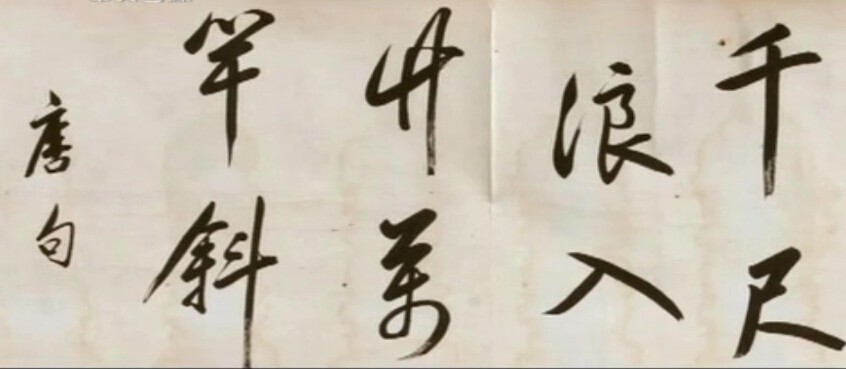 千尺
浪入
竹萬
竿斜
唐句